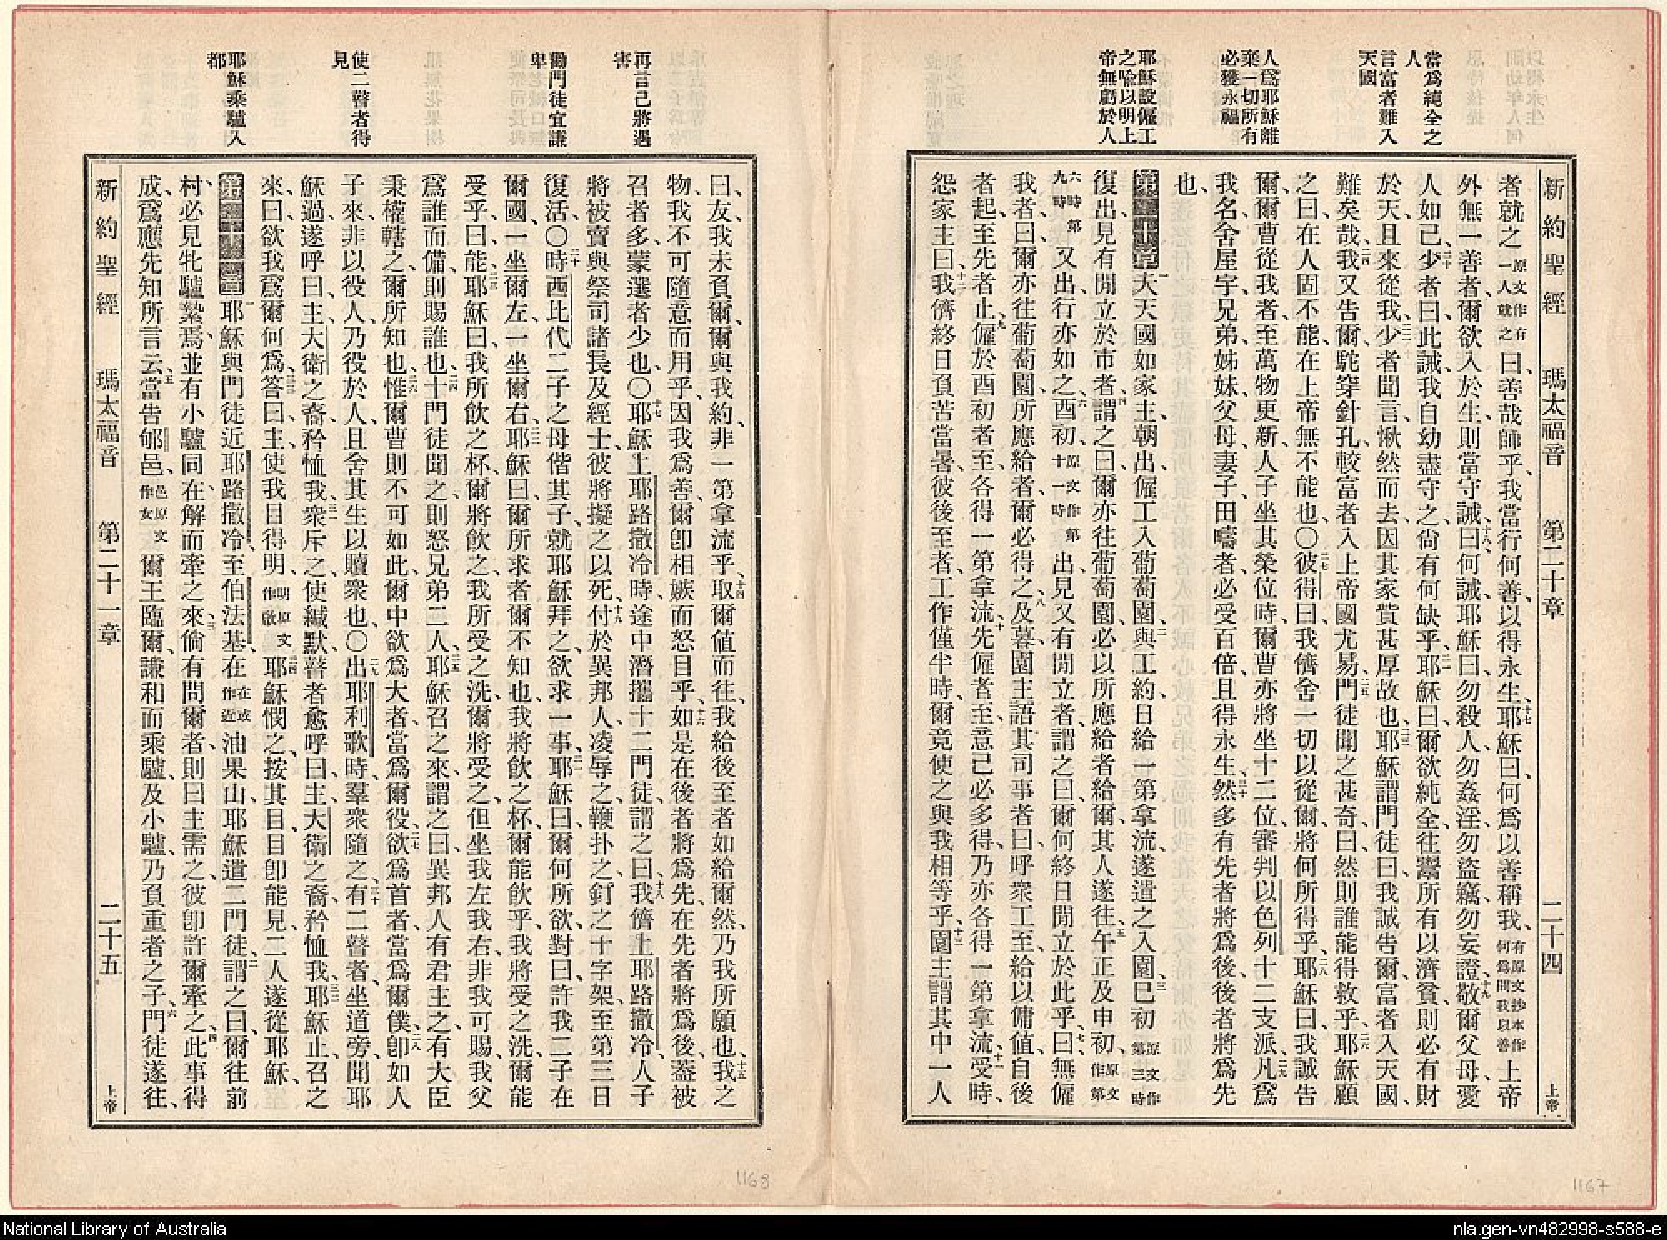 當爲純全之
人
言富者難入
天國
人爲耶穌離
棄一切所有
必獲永福
耶穌設僱工
之喻以明上
帝無虧於人
新約聖經 瑪太福音 第二十章 二十四 上帝
者就之原文作有一人就之曰善哉師乎、我當行何善、以得永生、耶穌曰、何爲以善稱我、有原文抄本作何爲問我以善上帝
外無一善者、爾欲入於生、則當守誡、曰、何誡、耶穌曰、勿殺人、勿姦淫、勿盜竊、勿妄證、敬爾父母、愛
人如己、少者曰、此誡我自幼盡守之、尙有何缺乎、耶穌曰、爾欲純全、往鬻所有以濟貧、則必有財
於天、且來從我、少者聞言、愀然而去、因其家貲甚厚故也、耶穌謂門徒曰、我誠告爾、富者入天國、
難矣哉、我又告爾、駝穿針孔、較富者入上帝國尤易、門徒聞之甚奇、曰、然則誰能得救乎、耶穌顧
之曰、在人固不能、在上帝無不能也、○彼得曰、我儕舍一切以從爾、將何所得乎、耶穌曰、我誠告
爾、爾曹從我者、至萬物更新、人子坐其榮位時、爾曹亦將坐十二位、審判以色列十二支派、凡爲
我名、舍屋宇、兄弟、姊妹、父母、妻子、田疇者、必受百倍、且得永生、然多有先者將爲後、後者將爲先
也、
第二十章天國如家主、朝出僱工入葡萄園、與工約日給一第拿流、遂遣之入園、巳初原文作第三時
復出、見有閒立於市者、謂之曰、爾亦往葡萄園、必以所應給者給爾、其人遂往、午正及申初原文作第
六時第九時又出、行亦如之、酉初原文作第十一時出、見又有閒立者、謂之曰、爾何終日閒立於此乎、曰、無僱
我者、曰、爾亦往葡萄園、所應給者、爾必得之、及暮、園主語其司事者曰、呼衆工至、給以傭値、自後
者起、至先者止、僱於酉初者至、各得一第拿流、先僱者至、意己必多得、乃亦各得一第拿流、受時、
怨家主曰、我儕終日負苦當暑、彼後至者、工作僅半時、爾竟使之與我相等乎、園主謂其中一人
再言己將遇
害
勸門徒宜謙
卑
使二瞽者得
見
耶穌乘驢入
都
曰、友、我未負爾、爾與我約、非一第拿流乎、取爾値而往、我給後至者、如給爾然、乃我所願也、我之
物、我不可隨意而用乎、因我爲善、爾卽相嫉而怒目乎、如是在後者將爲先、在先者將爲後、蓋被
召者多、蒙選者少也、○耶穌上耶路撒冷時、途中潛攜十二門徒、謂之曰、我儕上耶路撒冷、人子
將被賣與祭司諸長及經士、彼將擬之以死、付於異邦人、凌辱之、鞭扑之、釘之十字架、至第三日
復活、○時西比代二子之母、偕其子就耶穌拜之、欲求一事、耶穌曰、爾何所欲、對曰、許我二子在
爾國、一坐爾左、一坐爾右、耶穌曰、爾所求者、爾不知也、我將飲之杯、爾能飲乎、我將受之洗、爾能
受乎、曰、能、耶穌曰、我所飲之杯、爾將飲之、我所受之洗、爾將受之、但坐我左我右、非我可賜、我父
爲誰而備、則賜誰也、十門徒聞之、則怒兄弟二人、耶穌召之來、謂之曰、異邦人有君主之、有大臣
秉權轄之、爾所知也、惟爾曹則不可如此、爾中欲爲大者、當爲爾役、欲爲首者、當爲爾僕、卽如人
子來、非以役人、乃役於人、且舍其生、以贖衆也、○出耶利歌時、羣衆隨之、有二瞽者坐道旁、聞耶
穌過、遂呼曰、主、大衞之裔、矜恤我、衆斥之使緘默、瞽者愈呼曰、主、大衞之裔、矜恤我、耶穌止、召之
來曰、欲我爲爾何爲、答曰、主、使我目得明、明原文作啟耶穌憫之、按其目、目卽能見、二人遂從耶穌、
第二十一章耶穌與門徒近耶路撒冷、至伯法基、在在或作近油果山、耶穌遣二門徒、謂之曰、爾往前
村、必見牝驢縶焉、並有小驢同在、解而牽之來、倘有問爾者、則曰、主需之、彼卽許爾牽之、此事得
成、爲應先知所言云、當告郇邑、邑原文作女爾王臨爾、謙和而乘驢、及小驢、乃負重者之子、門徒遂往、
新約聖經 瑪太福音 第二十一章 二十五 上帝
1168
1167
National Library of Australia
nla.gen-vn482998-s588-e